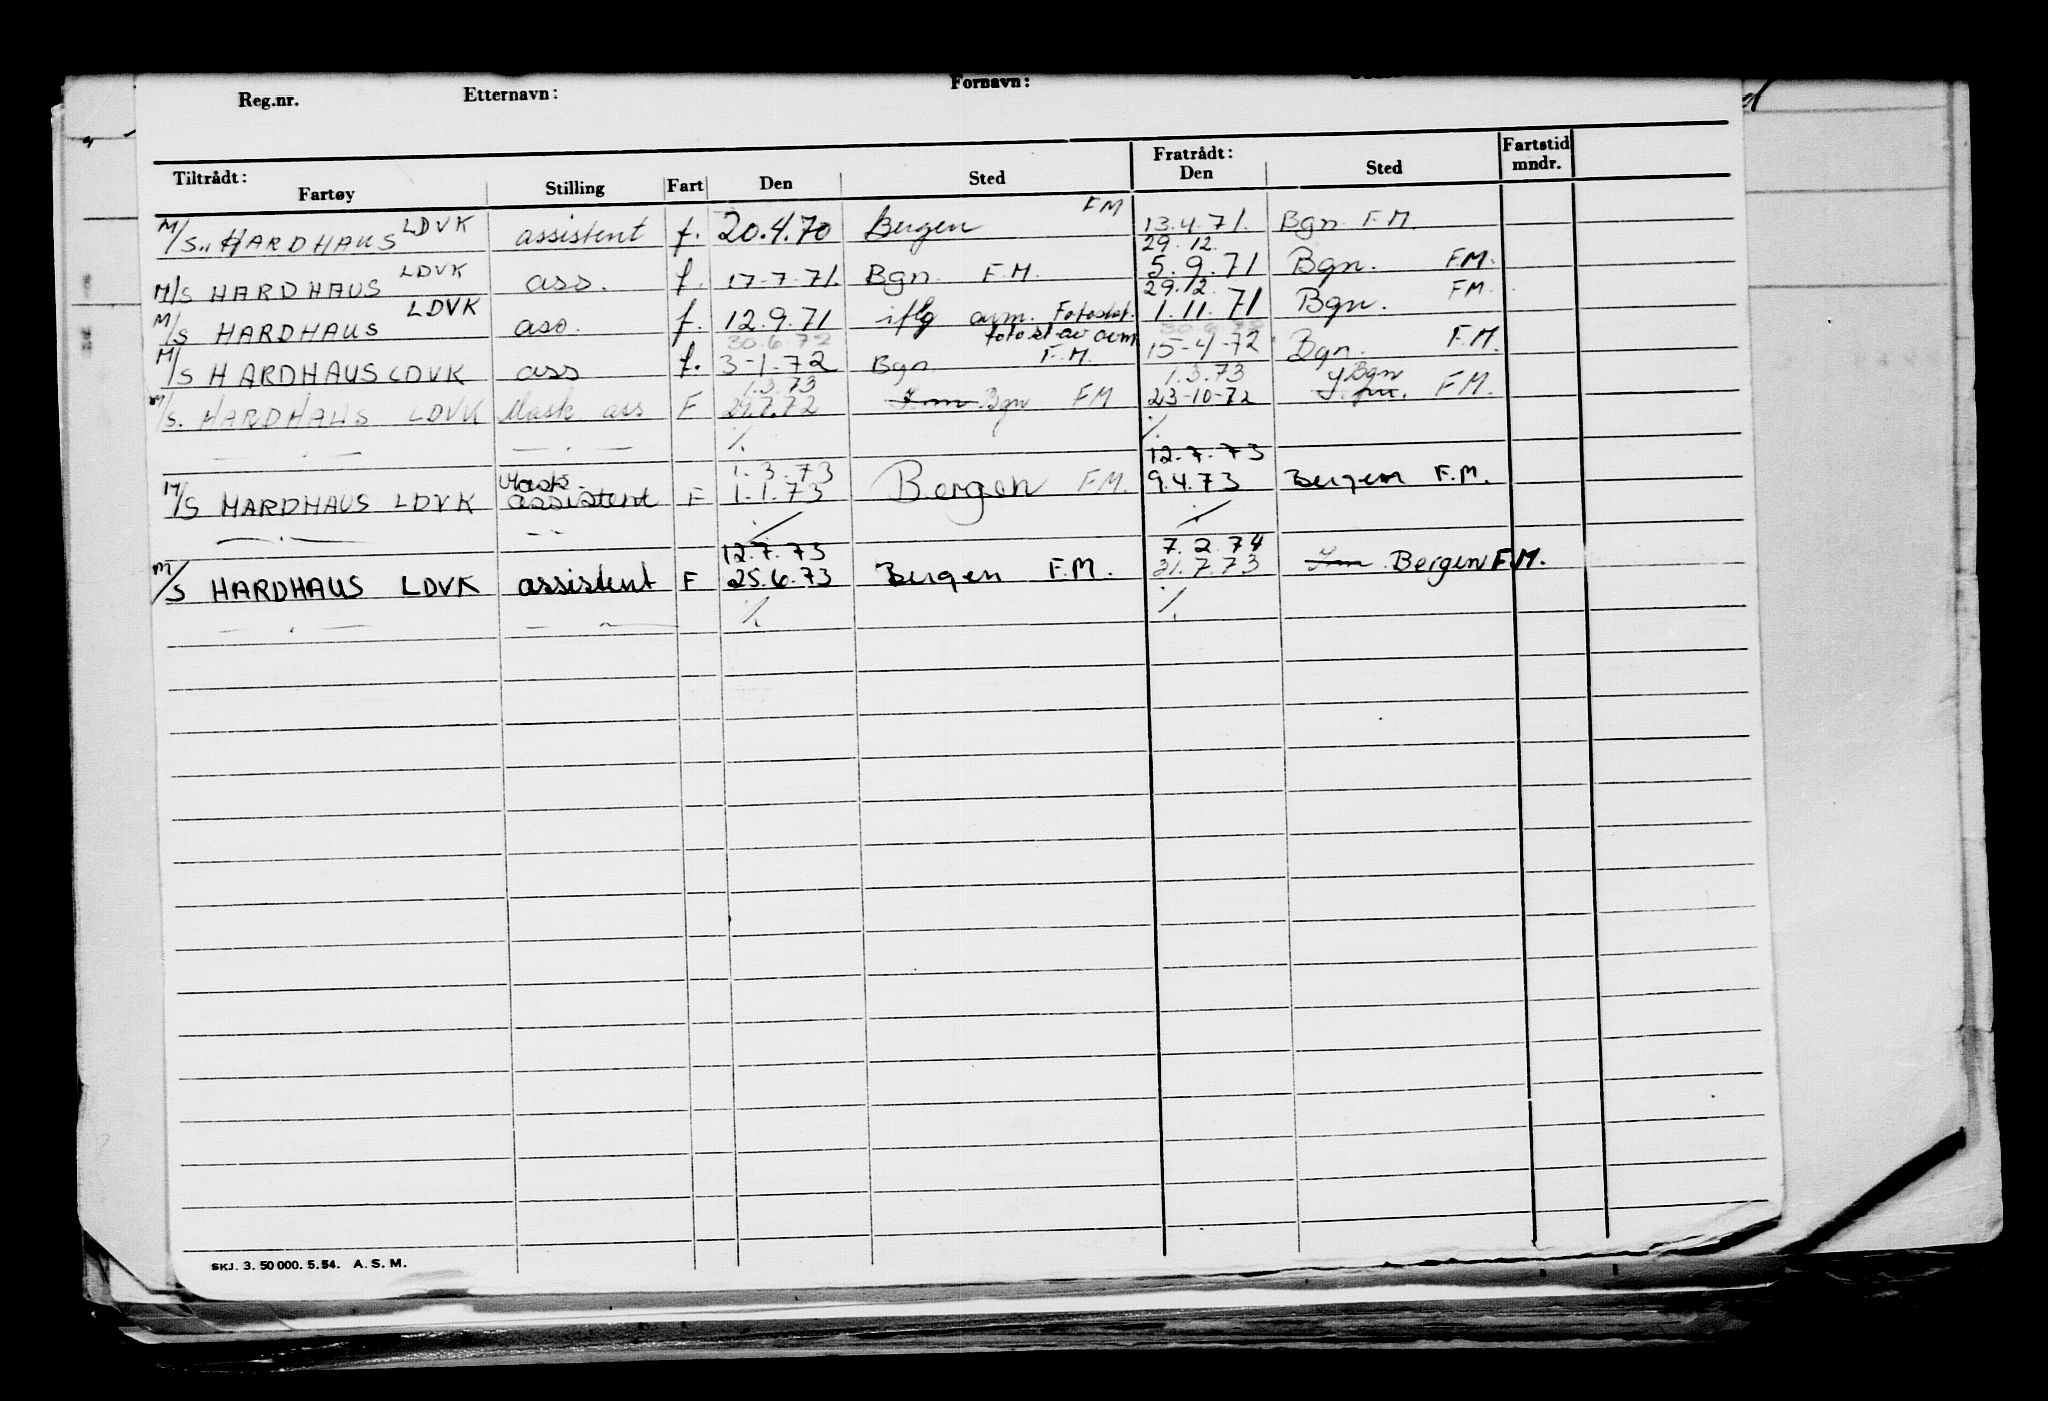 Reg.nr. Etternavn: Fornavn:
Tiltrådt: Fratrådt: Fartstid
Fartøy Stilling Fart Den Sted Den Sted mndr.
M/S „HARDHAUS LDVK assistent f. 20.4.70 Bergen FM 13.4.71. Bgn F.M.
29.12.
M/S HARDHAUS LDVK ass. f. 17.7.71. Bgn. F.M. 5.9.71 Bgn. F.M.
29.12.
M/S HARDHAUS LDVK ass. f. 12.9.71 iflg avm. Fotostat. 1.11.71 Bgn. FM.
30.6.72 fotost av avm 30.6.72
M/S HARDHAUS LDVK ass f. 3-1.72 Bgn F.M. 15-4-72 Bgn. F.M.
1.3.73 1.3.73 Bgn
M/S. HARDHAUS LDVK Mask ass F 29.7.72 Bgn FM 23-10-72 F.M.
— . — — . — ·/. ·/.
1.3.73 12.7.73
Mask
M/S HARDHAUS LDVK assistent F 1.1.73 Bergen F.M. 9.4.73 Bergen F.M.
— . — — — ·/. ·/.
12.7.73 7.2.74
M/S HARDHAUS LDVK assistent F 25.6.73 Bergen F.M. 31.7.73 Bergen F.M.
— . — — — ·/. ·/.
SKJ. 3. 50 000. 5.54. A. S. M.